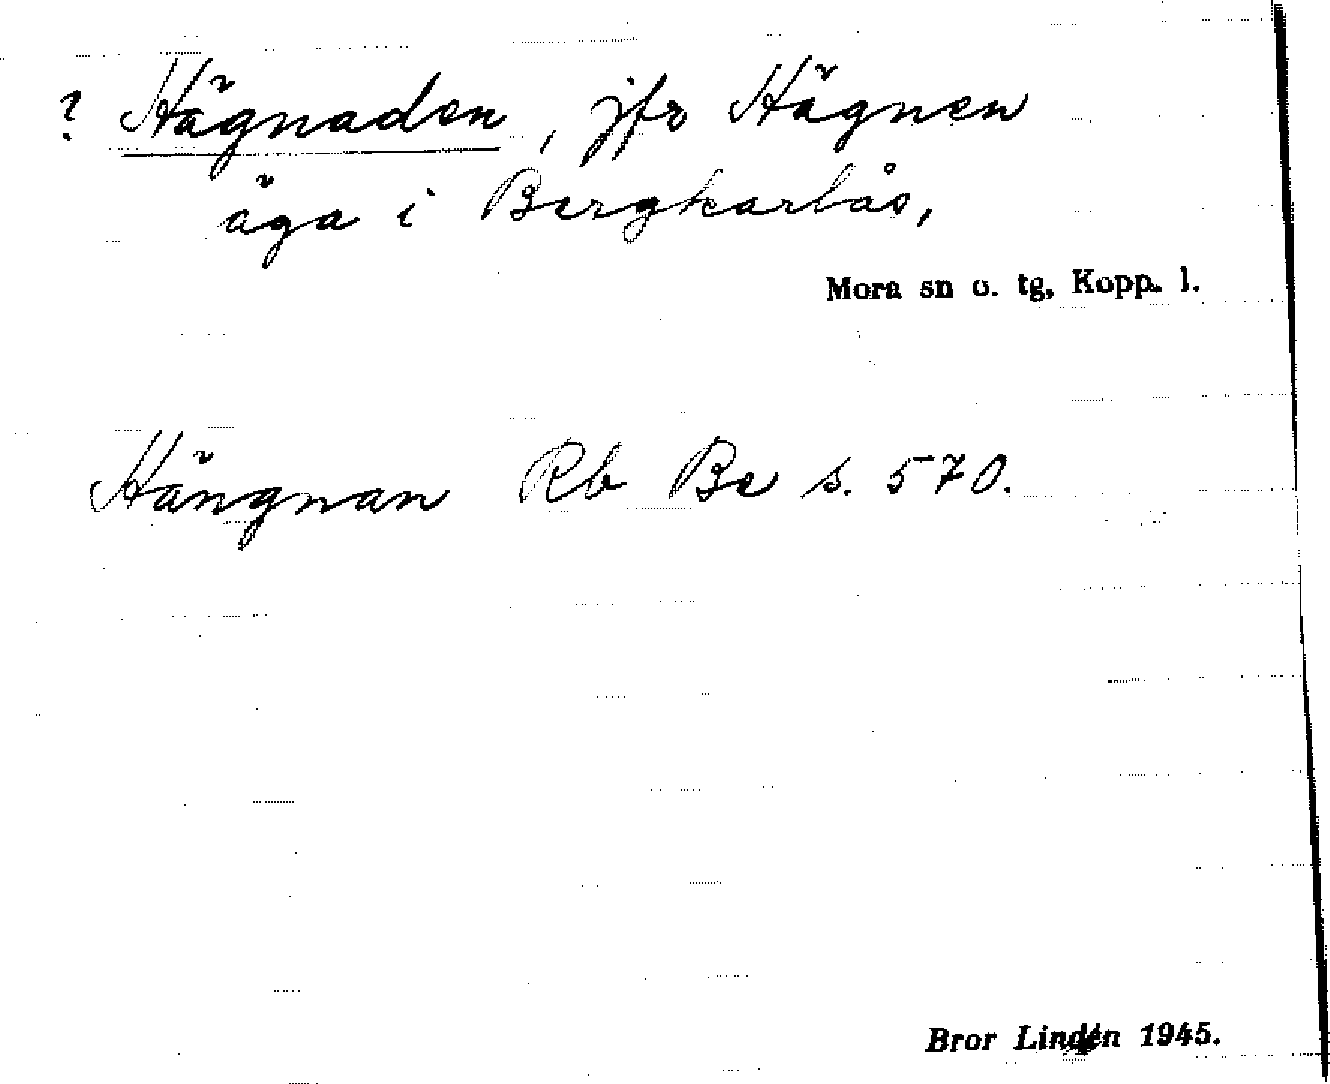 ? Hägnaden, jfr Hägnen
äga i Bergkarlås,
Mora sn o. tg, Kopp. l.
Hängnan Rb Be s. 570.
Bror Lindén 1945.